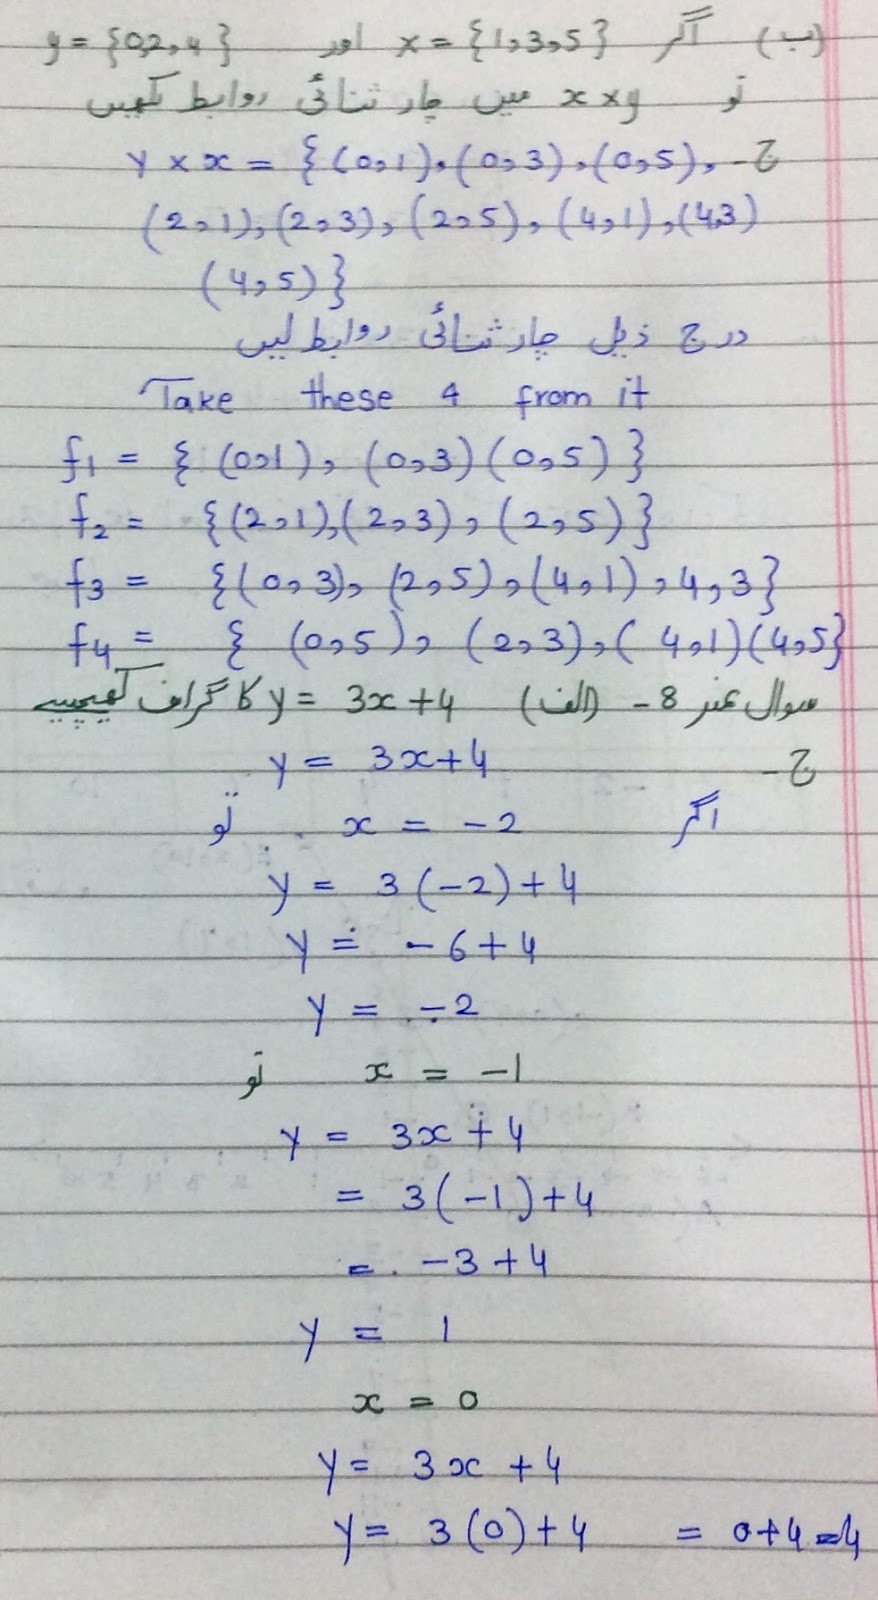 (ب) اگر x = {1,3,5} اور y = {0,2,4}
تو x×y میں چار ثنائی روابط لکھیں
ج- y × x = {(0,1),(0,3),(0,5),
(2,1),(2,3),(2,5),(4,1),(4,3)
(4,5)}
درج ذیل چار ثنائی روابط لیں
Take these 4 from it
f1 = {(0,1),(0,3)(0,5)}
f2 = {(2,1),(2,3),(2,5)}
f3 = {(0,3),(2,5),(4,1),4,3}
f4 = {(0,5),(2,3),(4,1)(4,5}
سوال نمبر 8 - (الف) y = 3x+4 کا گراف کھینچیے
ج- y = 3x+4
اگر x = -2 تو
y = 3(-2)+4
y = -6+4
y = -2
x = -1 تو
y = 3x+4
= 3(-1)+4
= -3+4
y = 1
x = 0
y = 3x+4
y = 3(0)+4 = 0+4=4